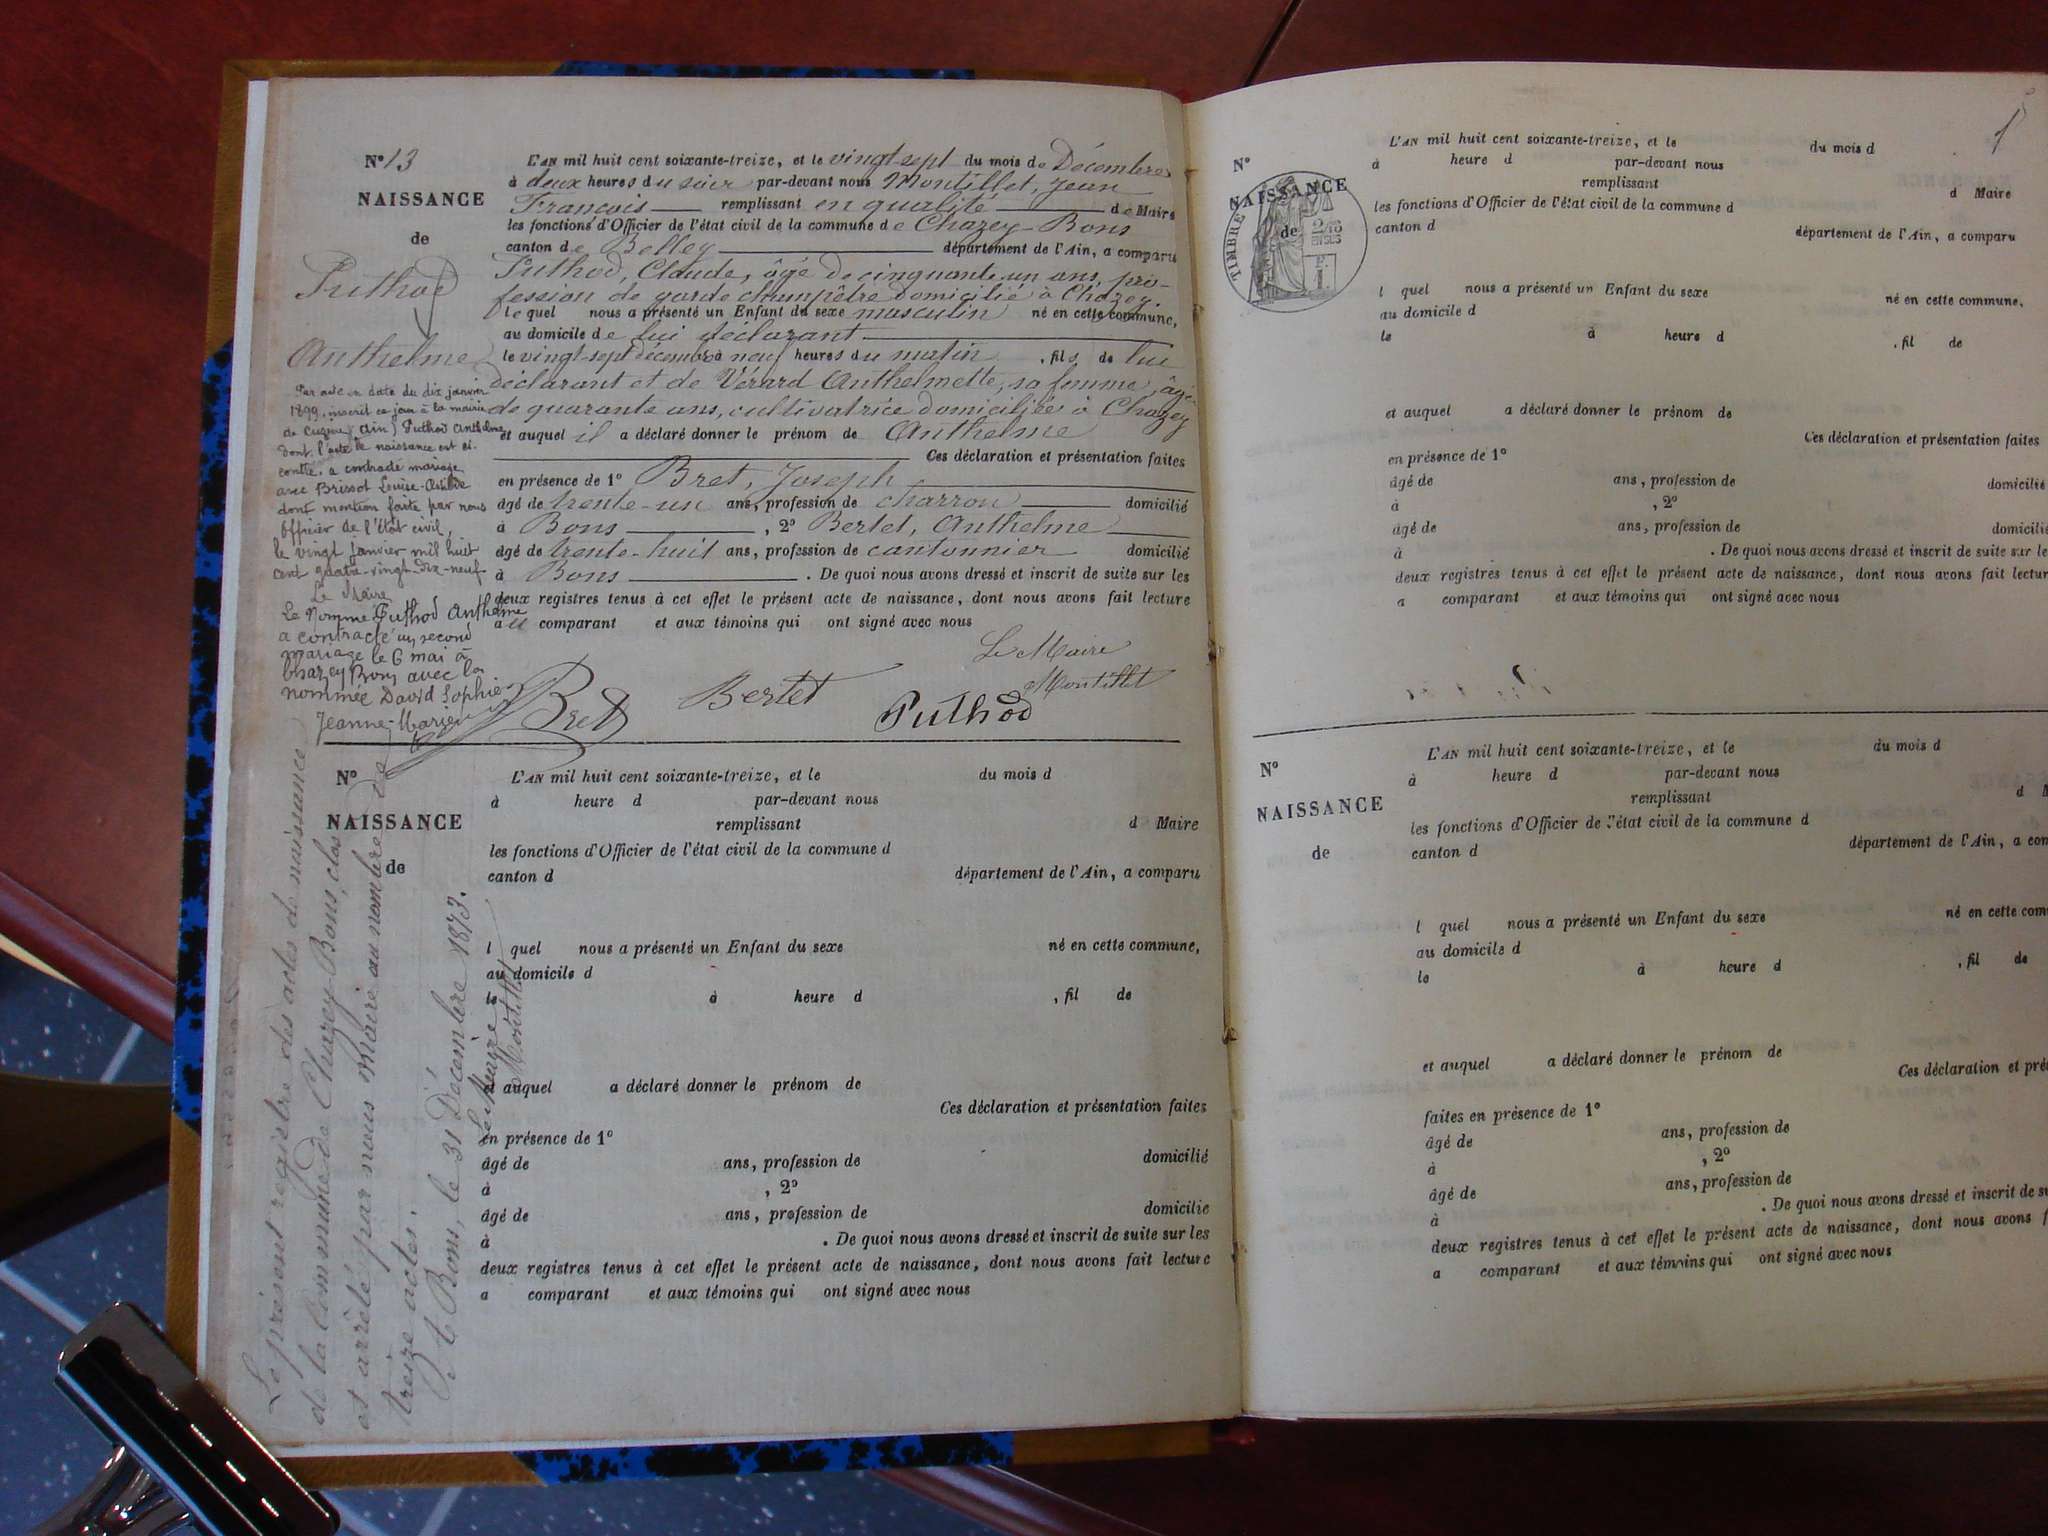 N° 13
NAISSANCE
de
Puthod
Anthelme
Par acte en date du dix janvier
1899, inscrit ce jour à la mairie
de Cuzieu (Ain) Puthod Anthelme
dont l'acte de naissance est ci-
contre, a contracté mariage
avec Brissot Louise
dont mention faite par nous
Officier de l'Etat civil,
le vingt janvier mil huit
cent quatre-vingt-dix-neuf
Le Maire
Le Nommé Puthod Anthelme
a contracté un second
mariage le 6 mai à
Chazey Bons avec la
nommée David Sophie
Jeanne-Marie
L'AN mil huit cent soixante-treize, et le vingt sept du mois de Décembre
à deux heures du soir par-devant nous Montillet, Jean
François remplissant en qualité de Maire
les fonctions d'Officier de l'état civil de la commune de Chazey-Bons
canton de Belley département de l'Ain, a comparu
Puthod, Claude, âgé de cinquante un ans, pro-
fession de garde champêtre domicilié à Chazey.
lequel nous a présenté un Enfant du sexe masculin né en cette commune,
au domicile de lui déclarant
le vingt-sept décembre à neuf heures du matin, fils de lui
déclarant et de Vérard Anthelmette, sa femme, âgée
de quarante ans, cultivatrice domiciliée à Chazey
et auquel il a déclaré donner le prénom de Anthelme
Ces déclaration et présentation faites
en présence de 1° Bret, Joseph
âgé de trente-un ans, profession de charron domicilié
à Bons, 2° Bertet, Anthelme
âgé de trente-huit ans, profession de cantonnier domicilié
à Bons. De quoi nous avons dressé et inscrit de suite sur les
deux registres tenus à cet effet le présent acte de naissance, dont nous avons fait lecture
au comparant et aux témoins qui ont signé avec nous
Le Maire
Montillet
Bret Bertet Puthod
N°
NAISSANCE
de
L'AN mil huit cent soixante-treize, et le du mois d
à heure d par-devant nous
remplissant d Maire
les fonctions d'Officier de l'état civil de la commune d
canton d département de l'Ain, a comparu
l quel nous a présenté un Enfant du sexe né en cette commune,
au domicile d
le à heure d , fil de
et auquel a déclaré donner le prénom de
Ces déclaration et présentation faites
en présence de 1°
âgé de ans, profession de domicilié
à , 2°
âgé de ans, profession de domicilié
à . De quoi nous avons dressé et inscrit de suite sur les
deux registres tenus à cet effet le présent acte de naissance, dont nous avons fait lecture
a comparant et aux témoins qui ont signé avec nous
Le présent registre des actes de naissance
de la commune de Chazey-Bons, clos
et arrêté par nous maire au nombre de
treize actes.
A Bons, le 31 Décembre 1873.
Le Maire
Montillet
N°
NAISSANCE
de
TIMBRE
L'AN mil huit cent soixante-treize, et le du mois d
à heure d par-devant nous
remplissant d Maire
les fonctions d'Officier de l'état civil de la commune d
canton d département de l'Ain, a comparu
l quel nous a présenté un Enfant du sexe né en cette commune,
au domicile d
le à heure d , fil de
et auquel a déclaré donner le prénom de
Ces déclaration et présentation faites
en présence de 1°
âgé de ans, profession de domicilié
à , 2°
âgé de ans, profession de domicilié
à . De quoi nous avons dressé et inscrit de suite sur le
deux registres tenus à cet effet le présent acte de naissance, dont nous avons fait lectur
a comparant et aux témoins qui ont signé avec nous
N°
NAISSANCE
de
L'AN mil huit cent soixante-treize, et le du mois d
à heure d par-devant nous
remplissant d M
les fonctions d'Officier de l'état civil de la commune d
canton d département de l'Ain, a com
l quel nous a présenté un Enfant du sexe né en cette com
au domicile d
le à heure d , fil de
et auquel a déclaré donner le prénom de
Ces déclaration et pré
faites en présence de 1°
âgé de ans, profession de
à , 2°
âgé de ans, profession de
à . De quoi nous avons dressé et inscrit de su
deux registres tenus à cet effet le présent acte de naissance, dont nous avons f
a comparant et aux témoins qui ont signé avec nous